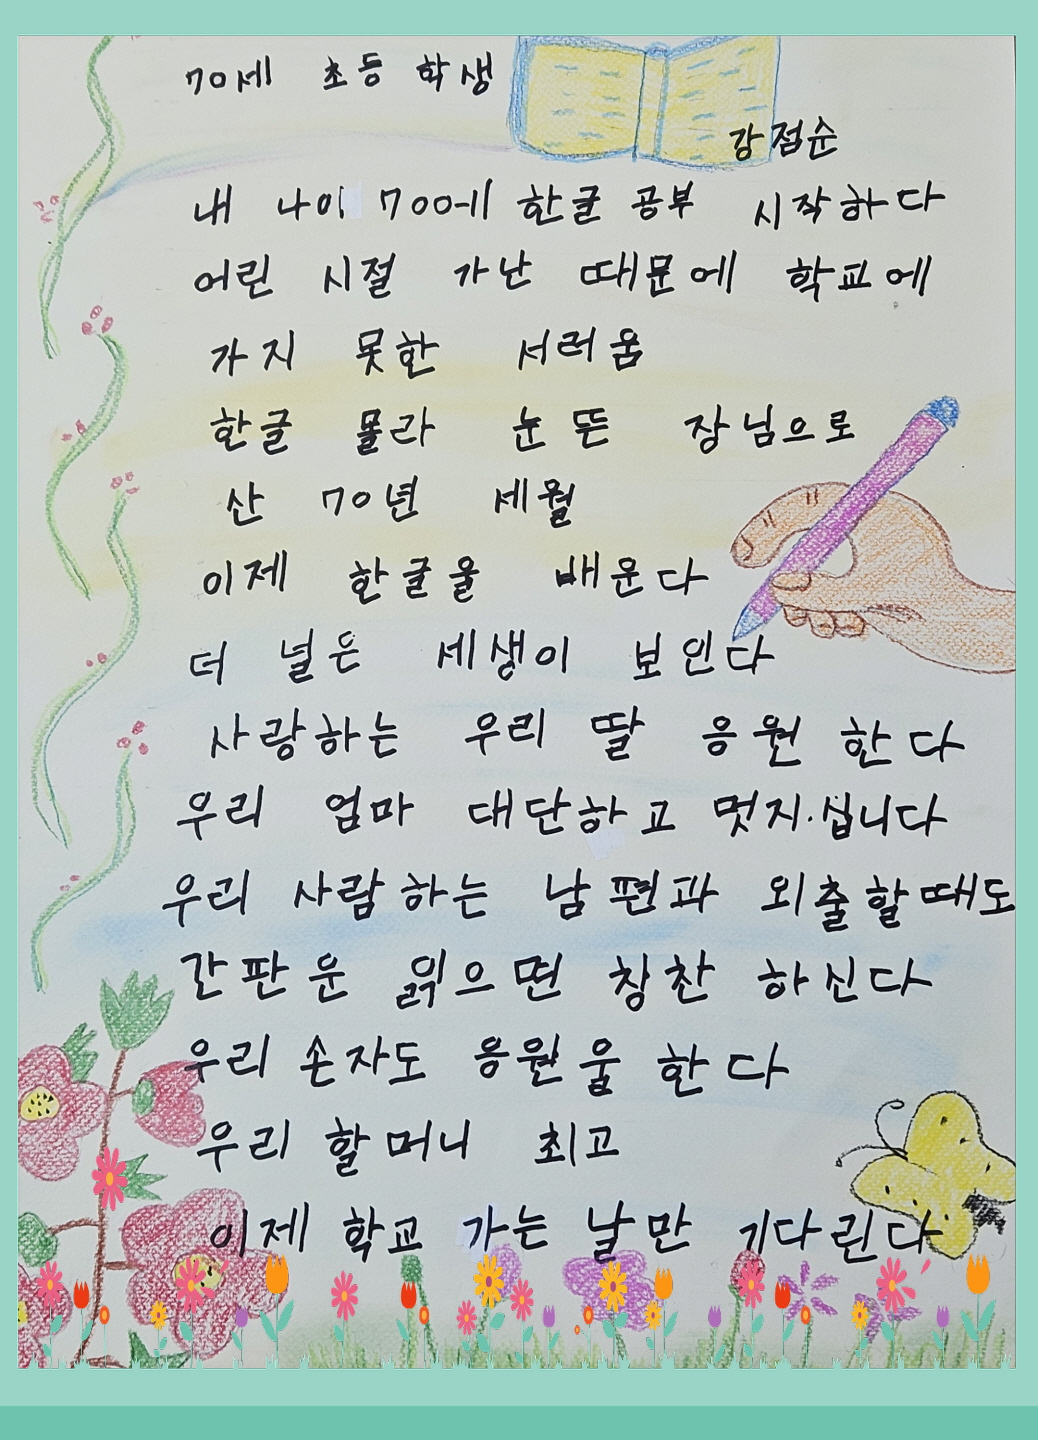 70세 초등 학생
강점순
내 나이 70에 한글 공부 시작하다
어린 시절 가난 때문에 학교에
가지 못한 서러움
한글 몰라 눈 뜬 장님으로
산 70년 세월
이제 한글을 배운다
더 널은 세생이 보인다
사랑하는 우리 딸 응원 한다
우리 엄마 대단하고 멋지십니다
우리 사람하는 남편과 외출할때도
간판운 읽으면 칭찬 하신다
우리 손자도 응원을 한다
우리 할머니 최고
이제 학교 가는 날만 기다린다